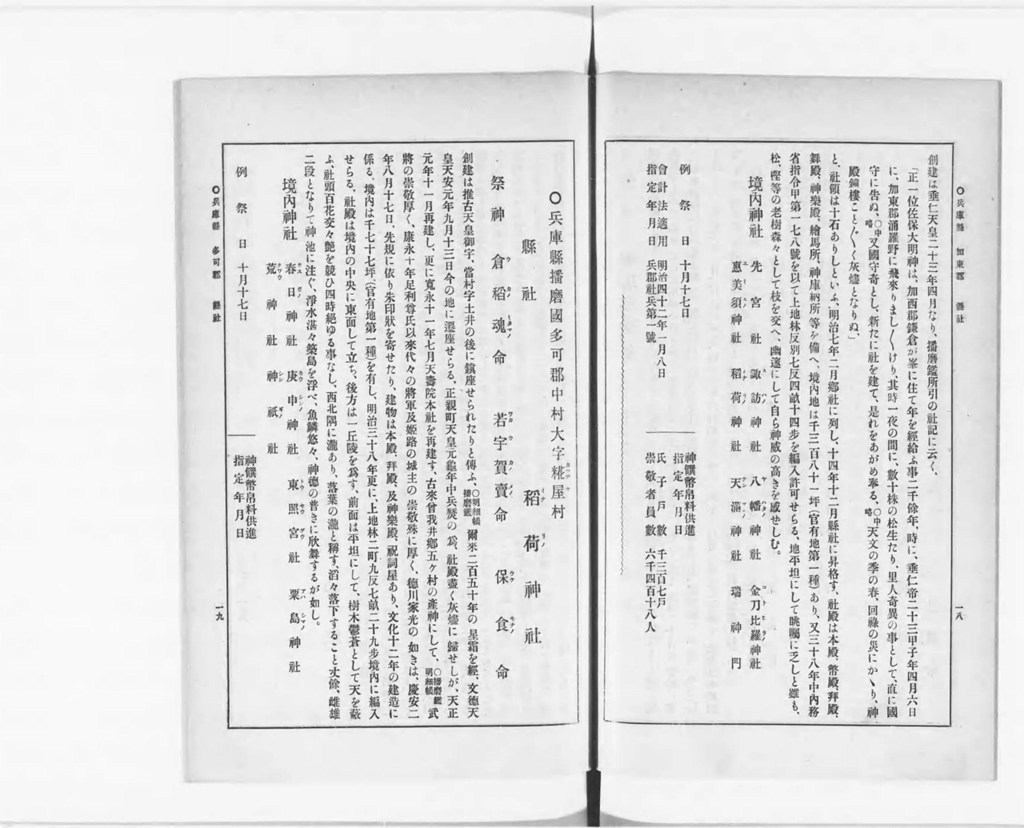 ○兵庫縣 加東郡 縣社
一八
創建は垂仁天皇二十三年四月なり、播磨鑑所引の社記に云く、
「正一位佐保大明神は、加西郡鎌倉が峯に住て年を經給ふ事二千餘年、時に、垂仁帝二十三甲子年四月六日
に、加東郡涌羅野に飛來りまし〱けり、其時一夜の間に、數十株の松生たり、里人奇異の事として、直に國
守に告ぬ、○中略又國守奇とし、新たに社を建て、是れをあがめ奉る、○中略天文の季の春、回祿の災にかヽり、神
殿鐘樓こと〲く灰燼となりぬ、」
と、社領は十石ありしといふ、明治七年二月鄕社に列し、十四年十二月縣社に昇格す、社殿は本殿、幣殿、拜殿、
舞殿、神樂殿、繪馬所、神庫納所等を備へ、境內地は千三百八十一坪(官有地第一種)あり、又三十八年中內務
省指令甲第一七八號を以て上地林反別七反四畝十四步を編入許可せらる、地平坦にして眺矚に乏しと雖も、
松、樫等の老樹森々として枝を交へ、幽邃にして自ら神威の高きを感せしむ。
境內神社 先宮社 諏訪神社 八幡神社 金刀比羅神社
惠美須神社 稻荷神社 天滿神社 瑞神門
例祭日 十月十七日 神饌幣帛料供進指定年月日
會計法適用 明治四十二年一月八日 氏子戶數 千三百七戶
指定年月日 兵郡社兵第一號 崇敬者員數 六千四百十八人
○兵庫縣播磨國多可郡中村大字糀屋村
縣社 稻荷神社
祭神 倉稻魂命 若宇賀賣命 保食命
創建は推古天皇御宇、當村字土井の後に鎮座せられたりと傳ふ、○明細帳播磨鑑爾來二百五十年の星霜を經、文德天
皇天安元年九月十三日今の地に遷座せらる、正親町天皇元龜年中兵燹の爲、社殿盡く灰燼に歸せしが、天正
元年十一月再建し、更に寬永十一年七月天壽院本社を再建す、古來曾我井鄕五ヶ村の產神にして、○播磨鑑明細帳武
將の崇敬厚く、康永十年足利尊氏以來代々の將軍及姬路の城主の崇敬殊に厚く、德川家光の如きは、慶安二
年八月十七日、先規に依り朱印狀を寄せたり、建物は本殿、拜殿、及神樂殿、祝詞屋あり、文化十二年の建造に
係る、境內は千七十七坪(官有地第一種)を有し、明治三十八年更に、上地林二町九反七畝二十九步境內に編入
せらる、社殿は境內の中央に東面して立ち、後方は一丘陵を爲す、前面は平坦にして、樹木鬱蒼として天を蔽
ふ、社頭百花交々艷を競ひ四時絕ゆる事なし、西北隅に瀧あり、落葉の瀧と稱す、滔々落下すること丈餘、雌雄
二段となりて神池に注ぐ、淨水湛々築島を浮べ、魚鱗悠々、神德の普きに欣舞するが如し。
境內神社 春日神社 庚申神社 東照宮社 粟島神社
荒神社 神祇社
例祭日 十月十七日 神饌幣帛料供進指定年月日
○兵庫縣 多可郡 縣社
一九